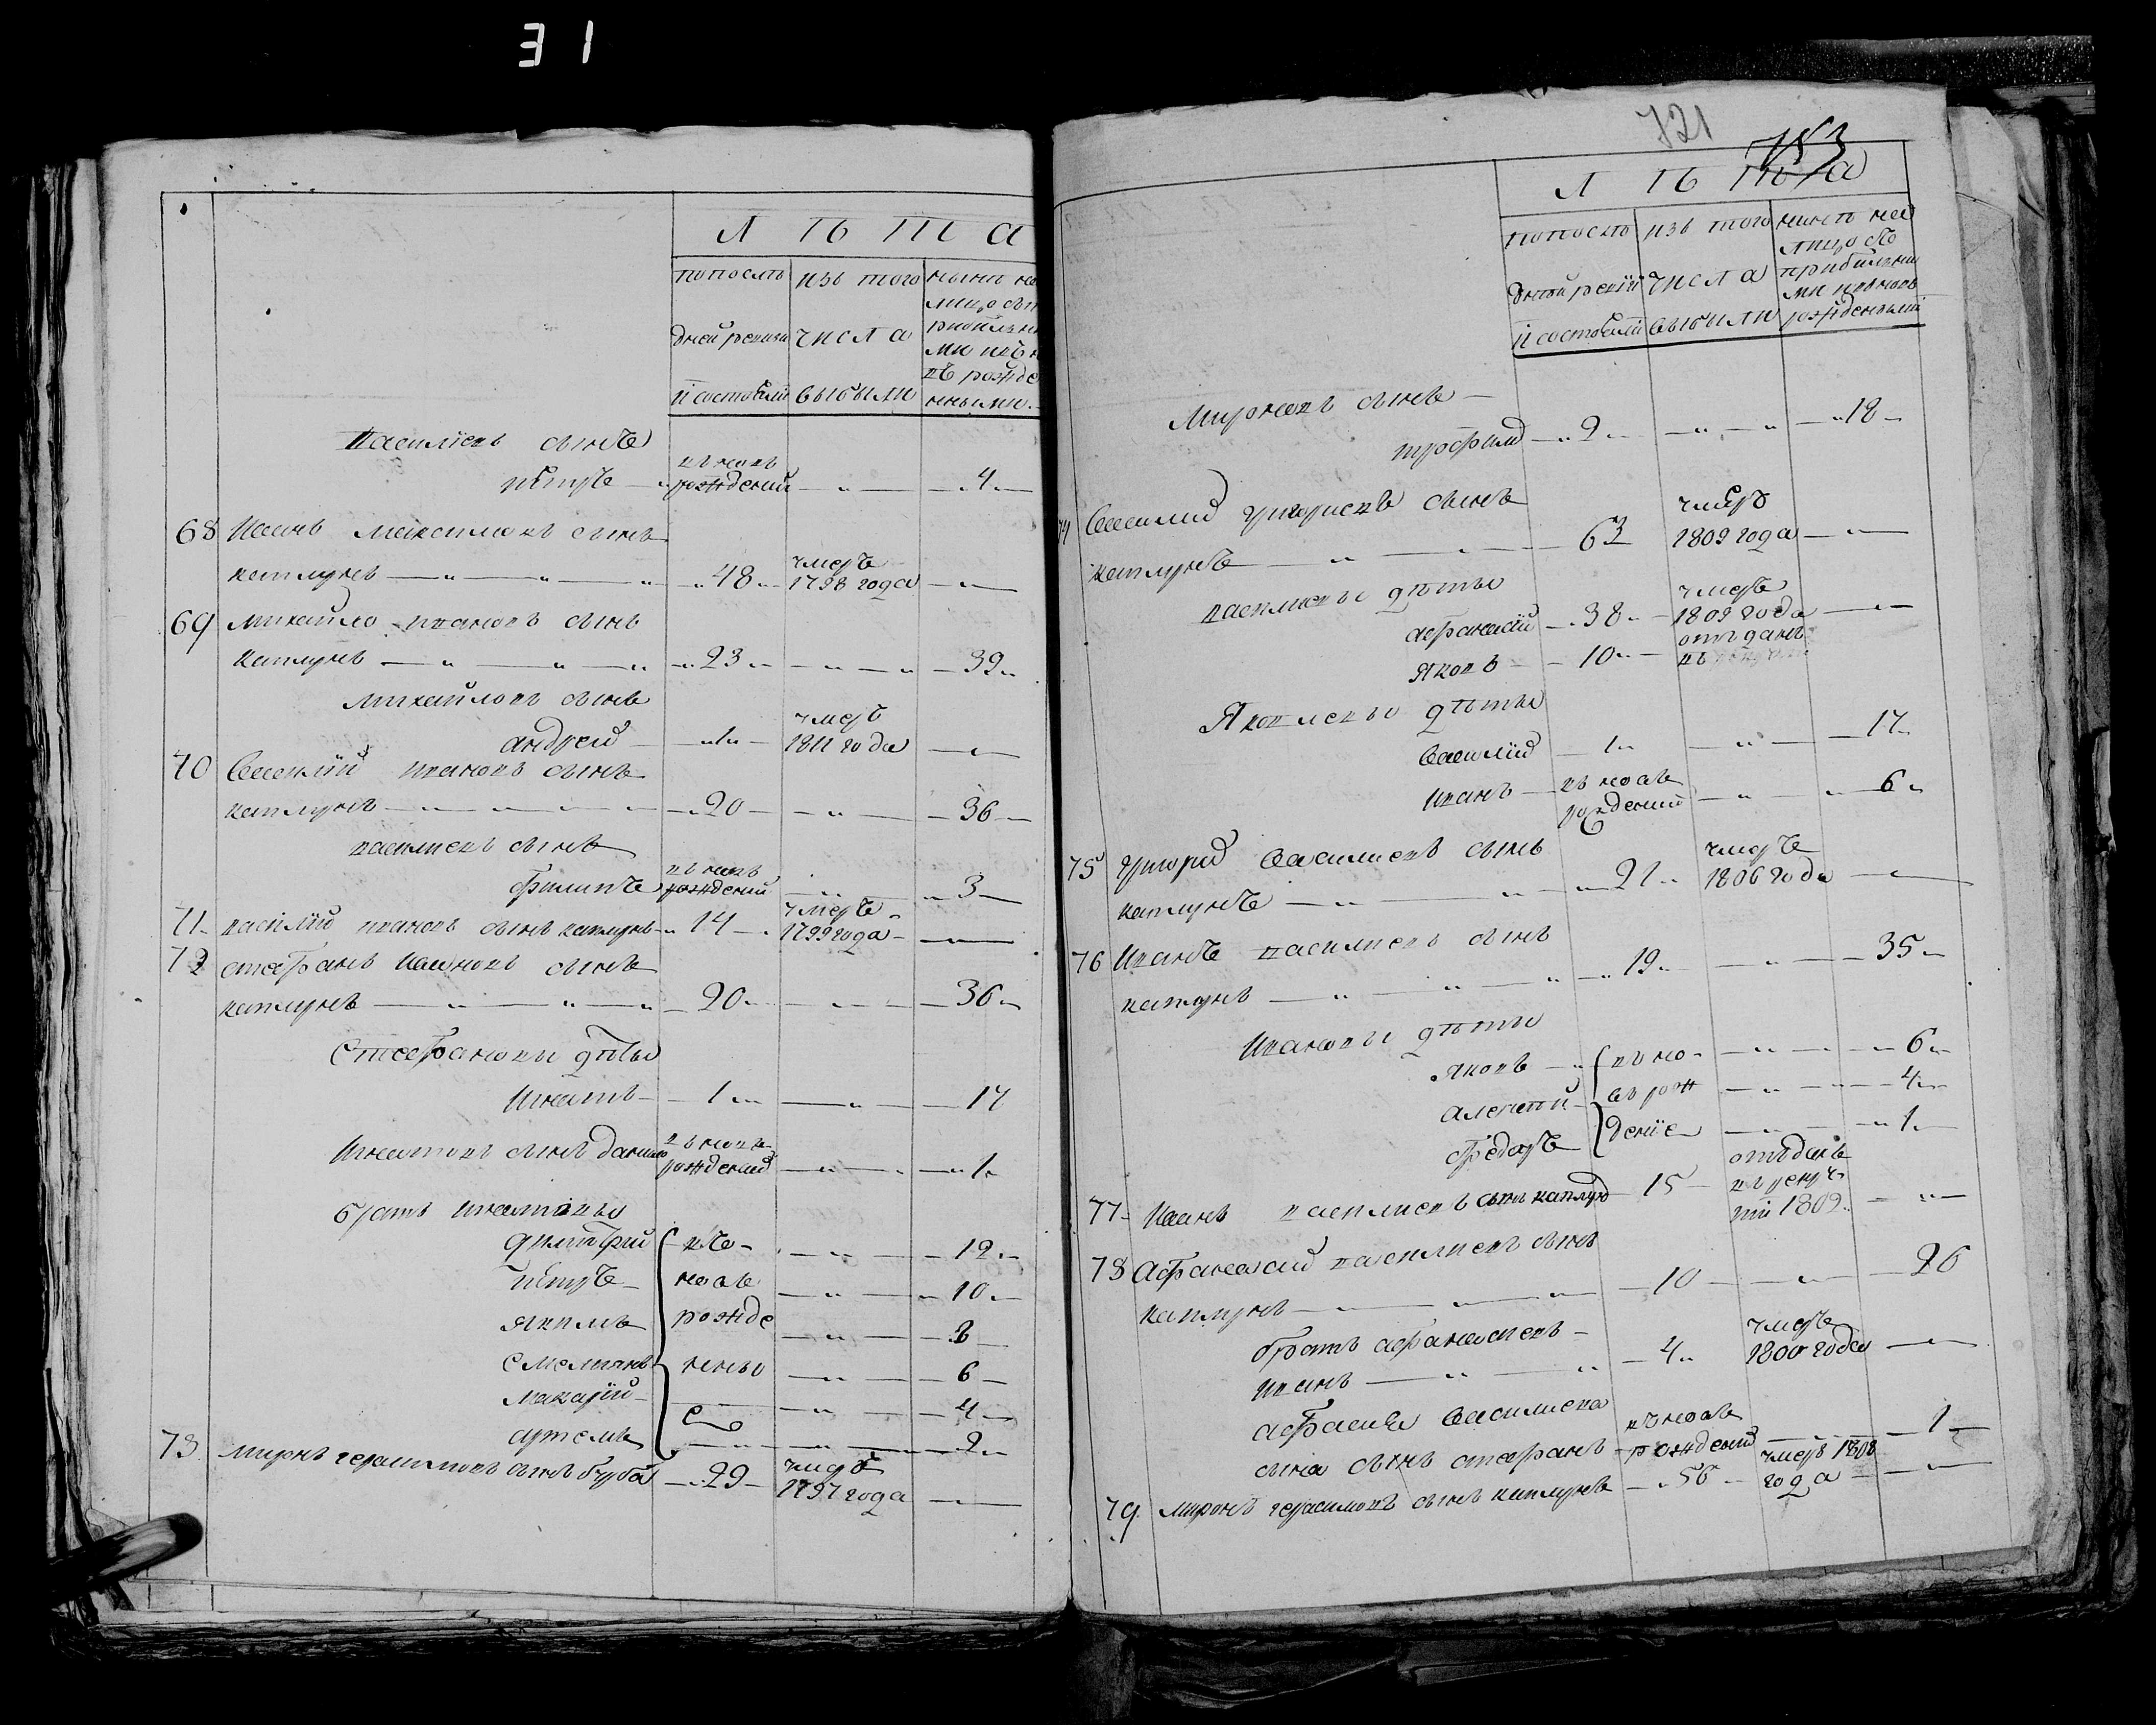 31
Л Ѣ Т А
по после
дней ревизи
и состояли
изъ того
числа
выбыли
ныне на
лицо съ п
рибылы
ми и въ н
въ рожде
нными
Василиевъ сынъ
петръ въ новь рождений 4
68 Иванъ Максимовъ сынъ
каплунъ 48 умеръ 1798 года
69 Михайло ивановъ сынъ
каплунъ 23 39
михайловъ сынъ
андрей 1 умеръ 1811 года
70 Василий ивановъ сынъ
каплунъ 20 36
василиевъ сынъ
филипъ въ новъ рождений 3
71 василий ивановъ сынъ каплунъ 14 умеръ 1799 года
72 стефанъ Ивановъ сынъ
каплунъ 20 36
Стефановы дѣты
Игнатъ 1 17
Игнатовъ сынъ данило въ новь рождений 1
братъ игнатовы
димитрий въ 12
петръ новь 10
якимъ рожде 8
емелиянъ ненъы 6
макарий е 4
артемъ 2
73 миронъ герасимовъ сынъ бурба 29 умеръ 1797 года
721
753
Л Ѣ Т А
по после
дней ревизи
и состояли
изъ того
числа
выбыли
ныне на
лицо съ
прибылы
ми и въновь
рожденными
Мироновъ сынъ
трофим 2 18
74 Василий григориевъ сынъ
каплунъ 63 умеръ 1809 года
василиевы дѣты
афанасий 38 умеръ 1809 года
яковъ 10 отъданъ въ рекруты
Яковлевы дѣты
Василий 1 17
иванъ въ новь рождений 6
75 григорий Василиевъ сынъ
каплунъ 21 умеръ 1806 года
76 Иванъ василиевъ сынъ
каплунъ 19 35
Ивановы дѣты
яковъ въ но 6
алексѣй въ рож 4
федоръ дение 1
77 Иванъ василиевъ сынъ каплун 15 отъданъ въ рекру ти 1809
78 Афанасий василиевъ сынъ
каплунъ 10 26
братъ афанасиевъ
иванъ 4 умеръ 1800 года
афанасия Василиева
сына сынъ стефанъ въ новь рождений 1
79 миронъ герасимовъ сынъ каплунъ 56 умеръ 1808 года